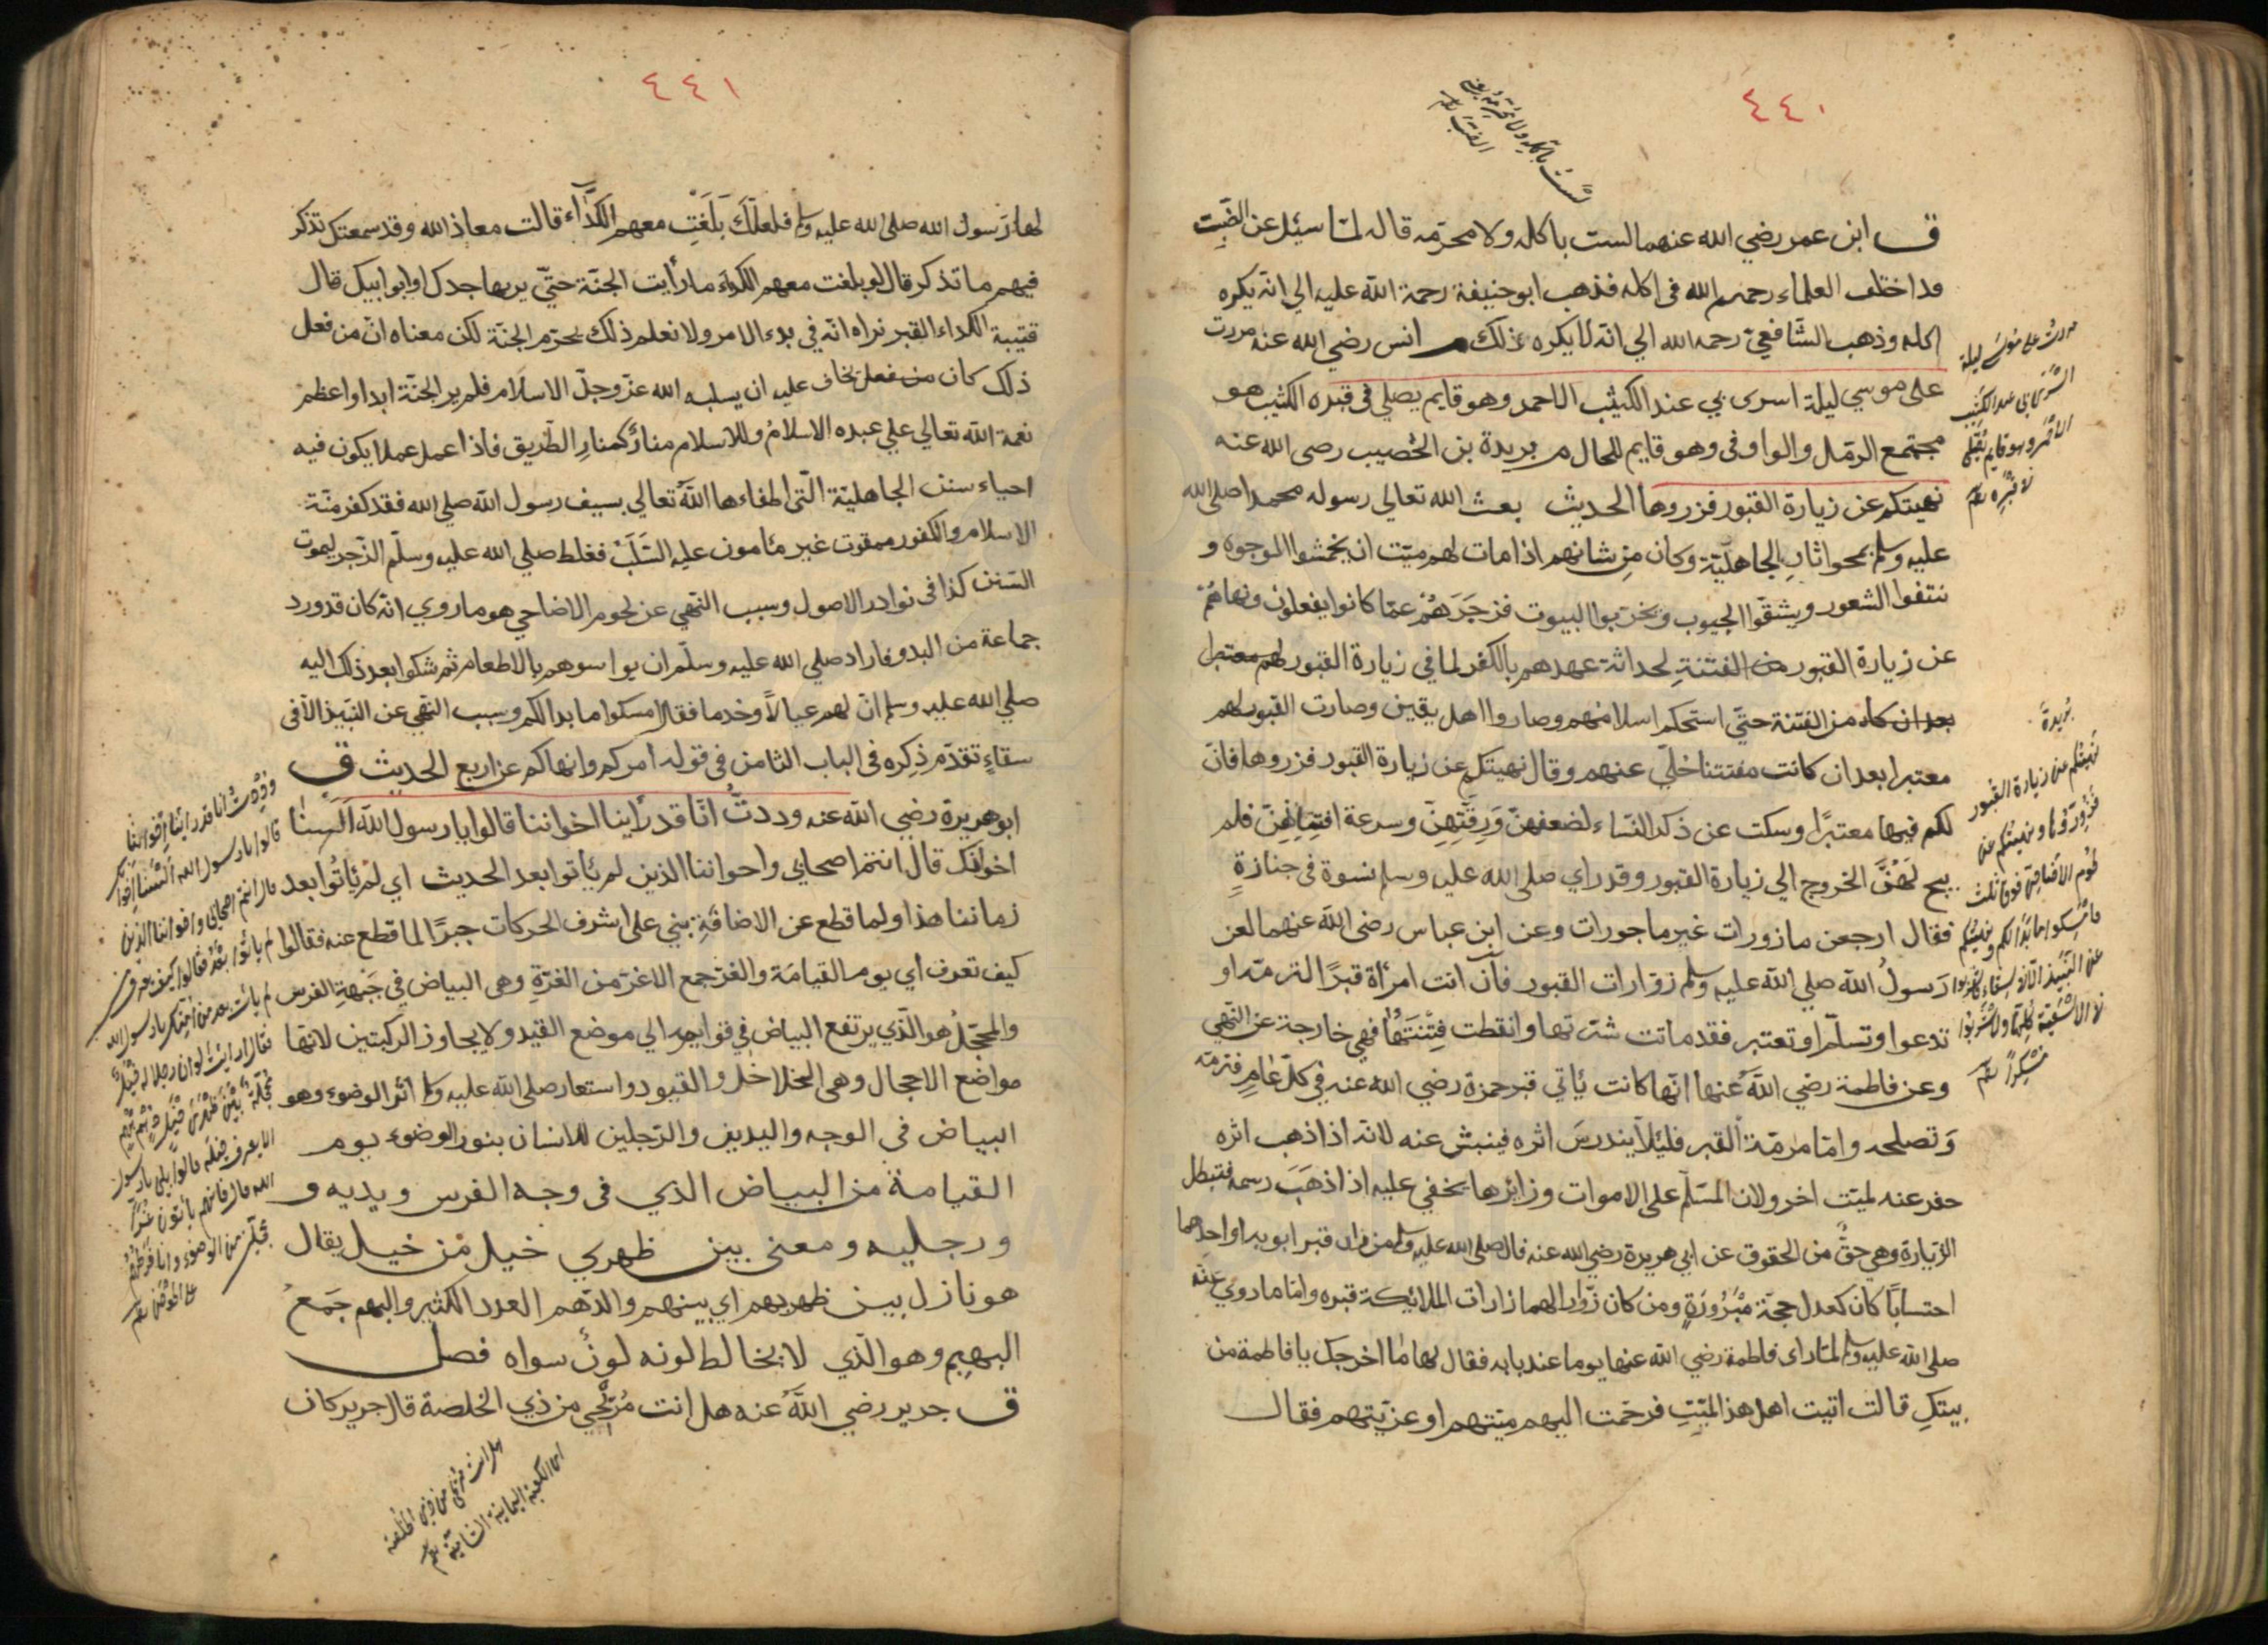 ٤٤٠
لست بآكله ولا محرمه
الضب
ق ابن عمر رضي الله عنهما لست باكله ولا محرمه قاله لما سئل عن الضب
وداختلف العلماء رحمهم الله فى اكله فذهب ابو حنيفة رحمة الله عليه الي انه يكره
اكله وذهب الشافعي رحمه الله الي انه لا يكره ذلك م انس رضي الله عنه مررت
على موسي ليلة اسرى بي عند الكثيب الاحمر وهو قايم يصلي في قبره الكثيب هو
مجتمع الرمل والواو فى وهو قايم للحال م بريدة بن الخصيب رضى الله عنه
نهيتكم عن زيارة القبور فزروها الحديث بعث الله تعالي رسوله محمدا صلى الله
عليه وسلم بمحو اثار الجاهلية وكان من شانهم اذا مات لهم ميت ان يخمشوا الوجوه و
نتفوا الشعور ويشقوا الجيوب ويخربوا البيوت فزجرهم عما كانوا يفعلون ونهاهم
عن زيارة القبور من الفتنة لحداثة عهدهم بالكفر لما في زيارة القبور لهم معتبرا
بعد ان كاد من الفتنة حتي استحكم اسلامهم وصاروا اهل يقين وصارت القبور لهم
معتبرا بعد ان كانت مفتتنا خلي عنهم وقال نهيتكم عن زيارة القبور فزروها فان
لكم فيها معتبرا وسكت عن ذكر النساء لضعفهن ورقتهن وسرعة افتتانهن فلم
يبح لهن الخروج الي زيارة القبور وقد راي صلى الله عليه وسلم نسوة فى جنازة
فقال ارجعن مازورات غير ماجورات وعن ابن عباس رضى الله عنهما لعن
رسول الله صلي الله عليه وسلم زوارات القبور فان اتت امرأة قبرا لترمته او
تدعوا وتسلم او تعتبر فقد ماتت شرتها وانقطت فتنتها فهي خارجة عن النهي
وعن فاطمة رضي الله عنها انها كانت يأتي قبر حمزة رضي الله عنه في كل عام فترمه
وتصلحه واما مرمة القبر فليلا يندرس اثره فينبش عنه لانه اذا ذهب اثره
حفر عنه لميت اخر ولان المسلم على الاموات وزائرها يخفي عليه اذا ذهب رسمه فتبطل
الزيارة وهي حق من الحقوق عن ابي هريرة رضي الله عنه قال صلى الله عليه وسلم من زار قبر ابويه او احدهما
احتسابا كان كعدل حجة مبرورة ومن كان زوارا لهما زارات الملائكة قبره واما ما روي عنه
صلى الله عليه وسلم لما راى فاطمة رضي الله عنها يوما عند بابه فقال لها ما اخرجك يا فاطمة من
بيتك قالت اتيت اهل هذا الميت فرحمت اليهم ميتهم او عزيتهم فقال
مررت على موسى ليلة
اسرى بي عند الكثيب
الاحمر وهو قايم يصلى
فى قبره
بريدة
نهيتكم عن زيارة القبور
فزوروها ونهيتكم عن
لحوم الاضاحى فوق ثلث
فامسكوا ما بدا لكم ونهيتكم
عن النبيذ الا فى سقاء فاشربوا
فى الاسقية كلها ولا تشربوا
مسكرا
٤٤١
لها رسول الله صلى الله عليه وسلم فلعلك بلغت معهم الكداء قالت معاذ الله وقد سمعتك تذكر
فيهم ما تذكر قال لو بلغت معهم الكداء ما رأيت الجنة حتي يربها جدك او ابو ابيك قال
قتيبة الكداء القبر نراه انه في بدء الامر ولا نعلم ذلك يحرم الجنة لكن معناه ان من فعل
ذلك كان من فعل يخاف عليه ان يسلبه الله عز وجل الاسلام فلم ير الجنة ابدا واعظم
نعمة الله تعالي علي عبده الاسلام وللاسلام منار كمنار الطريق فاذا عمل عملا يكون فيه
احياء سنن الجاهلية التى اطفاءها الله تعالي بسيف رسول الله صلي الله فقد كفر منة
الاسلام والكفور ممقوت غير مأمون عليه السلب فغلط صلي الله عليه وسلم الزجر ليموت
السنن كذا في نوادر الاصول وسبب النهي عن لحوم الاضاحي هو ما روي انه كان قد ورد
جماعة من البدو فاراد صلي الله عليه وسلم ان يواسوهم بالاطعام ثم شكوا بعد ذلك اليه
صلي الله عليه وسلم ان لهم عيالا وخدما فقال امسكوا ما بدا لكم وسبب النهي عن النبيذ الا فى
سقاء تقدم ذكره فى الباب الثامن في قوله آمركم وانهاكم عن اربع الحديث ق
ابو هريرة رضي الله عنه وددت انا قد رأينا اخواننا قالوا يا رسول الله السنا
اخوانك قال انتم اصحابي واخواننا الذين لم يأتوا بعد الحديث اي لم يأتوا بعد
زماننا هذا ولما قطع عن الاضافة بني على اشرف الحركات جبرا لما قطع عنه فقالوا
كيف تعرف اي يوم القيامة والغر جمع الاغر من الغرة وهى البياض في جبهة الفرس
والمحجل هو الذي يرتفع البياض في قوايمه الي موضع القيد ولا يجاوز الركبتين لانها
مواضع الاحجال وهى الخلاخل والقيود واستعار صلى الله عليه وسلم اثر الوضوء وهو
البياض في الوجه واليدين والرجلين للانسان بنور الوضوء يوم
القيامة من البياض الذي فى وجه الفرس ويديه و
ورجليه ومعنى بين ظهري خيل من خيل يقال
هو نازل بين ظهريهم اي بينهم والدهم العدد الكثير والبهم جمع
البهيم وهو الذي لا يخالط لونه لون سواه فصل
ق جرير رضي الله عنه هل انت مريحي من ذي الخلصة قال جرير كان
وددت انا قد رأينا اخواننا
قالوا يا رسول الله السنا اخوانك
قال انتم اصحابى واخواننا الذين
لم يأتوا بعد فقالوا كيف تعرف
لم يأت بعد من امتك يا رسول الله
فقال ارايت لو ان رجلا له خيل
محجلة بين ظهرى خيل دهم بهم
الا يعرف خيله قالوا بلى يا رسول
الله قال فانهم يأتون غرا
محجلين من الوضوء وانا فرطهم
على الحوض
هل انت مريحى من ذى الخلصة
اى الكعبة اليمانية الشامية